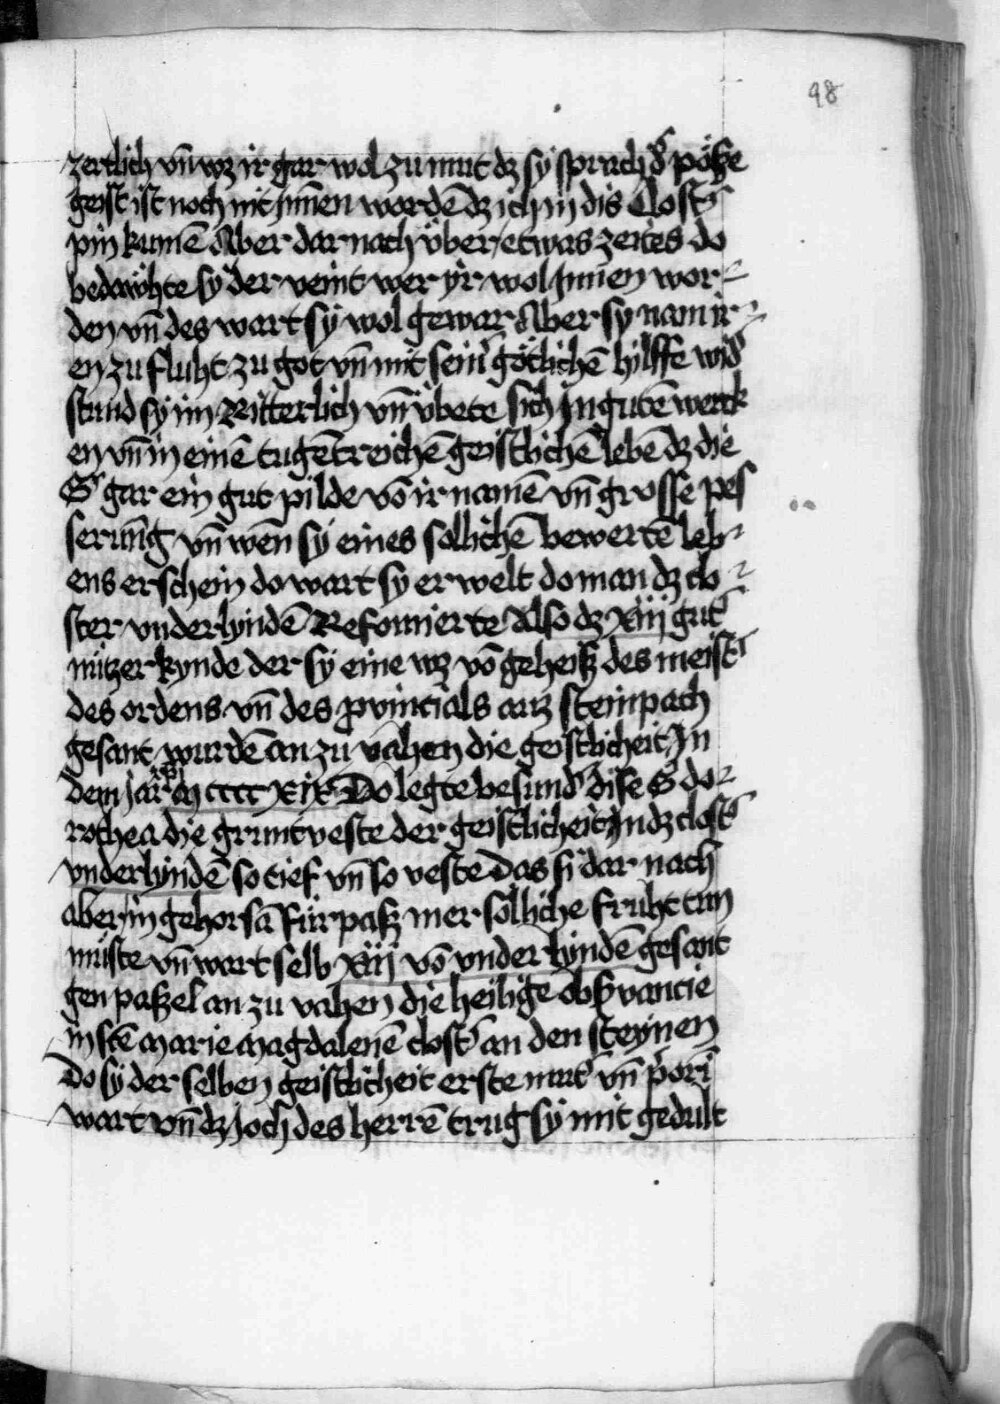 98
zertlich vn̄ wz ir gar wol zu mut dz sy sprach d' pöße
geist ist noch nit jnnen wordē dz ich in dis Clost'
pin kumē Aber dar nach über etwas zeites do
bedawhte sy der veint wer yr wol jnnen wor-
den vn̄ des wart sy wol gewar Aber sy nam ir
en zu fluht zu got vn̄ mit sein' götlichē hilffe wid'
stund sy im Ritterlich vn̄ übete sich In gutē werck
en vn̄ in einē tugētreichē geistlichē lebē dz die
S' gar ein gut pilde vō ir namē vn̄ grosse pes
serūng vn̄ wēn sy eines sollichē bewertē leb-
ens erschein do wart sy erwelt do man dz clo-
ster vnderlyndē Reformierte Also dz xiij gut'
nützer kynde der sy eine wz vō geheiß des meist'
des ordens vn̄ des provincials auz steinpach
gesant wurdē an zu vahen die geistlicheit In
dem jar M cccc xix Do legte besund' dise S do-
rothea die gruntveste der geistlicheit In dz clost'
vnderlyndē so tief vn̄ so veste Das si dar nach
aber in gehorsā fürpaß mer sölliche fruht tun
müste vn̄ wart selb xiij vō vnder lyndē gesant
gen paßel an zu vahen die heilige obs'vancie
in sct̄ marie magdalenē clost' an den steynen
Do sy der selben geistlicheit erste mut' vn̄ p'orī
wart vn̄ dz joch des herrē trug sy mit gedult